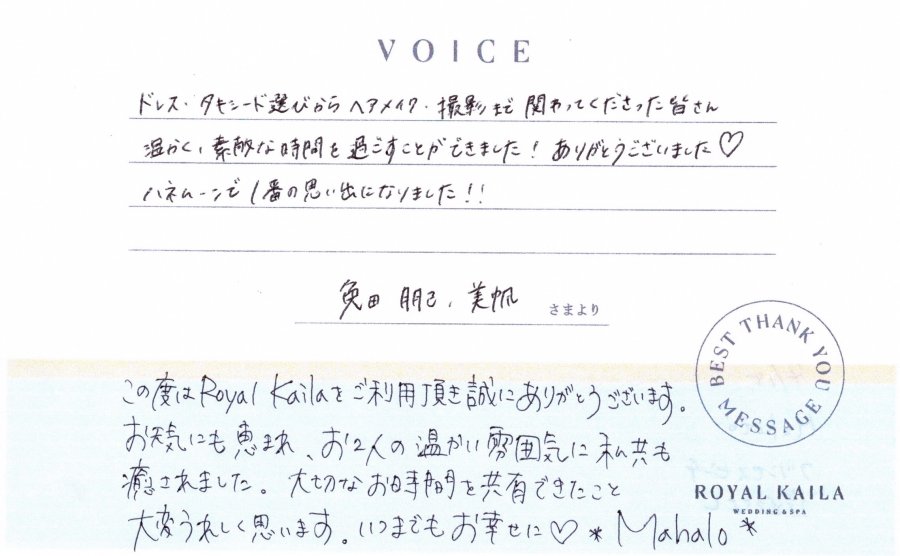 VOICE
ドレス・タキシード選びからヘアメイク・撮影まで関わってくださった皆さん
温かく、素敵な時間を過ごすことができました！ありがとうございました♡
ハネムーンで1番の思い出になりました!!
免田 朋己、美帆 さまより
BEST THANK YOU MESSAGE
この度はRoyal Kailaをご利用頂き誠にありがとうございます。
お天気にも恵まれ、お2人の温かい雰囲気に私共も
癒されました。大切なお時間を共有できたこと
大変うれしく思います。いつまでもお幸せに♡ *Mahalo*
ROYAL KAILA
WEDDING & SPA